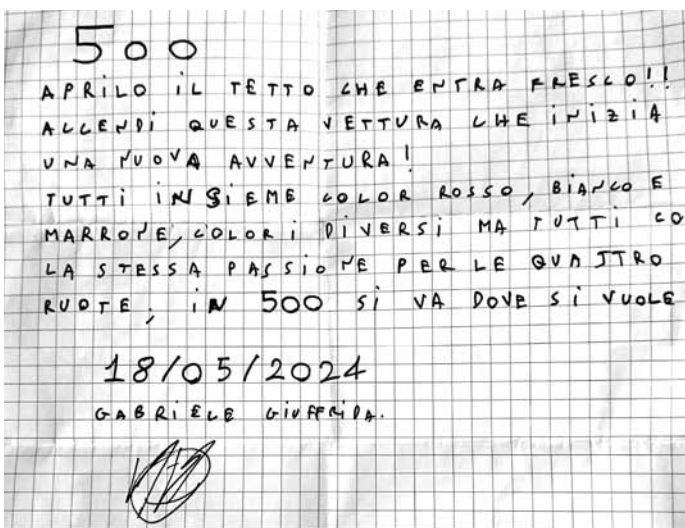 500
APRILO IL TETTO CHE ENTRA FRESCO!!
ACCENDI QUESTA VETTURA CHE INIZIA
UNA NUOVA AVVENTURA!
TUTTI INSIEME COLOR ROSSO, BIANCO E
MARRONE, COLORI DIVERSI MA TUTTI CO
LA STESSA PASSIONE PER LE QUATTRO
RUOTE, IN 500 SI VA DOVE SI VUOLE
18/05/2024
GABRIELE GIUFFRIDA.